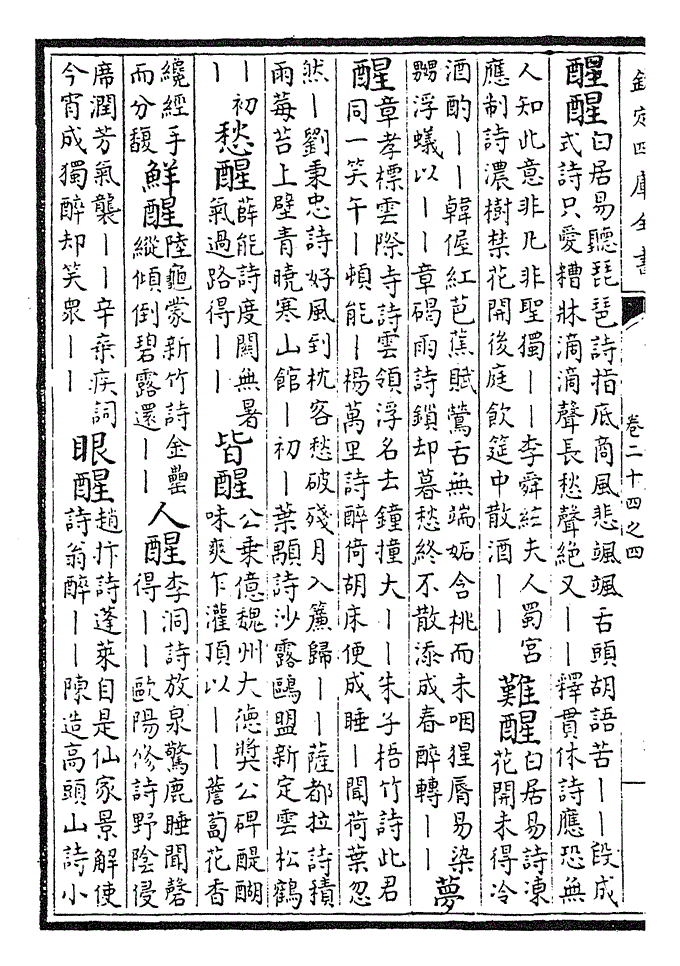 欽定四庫全書
卷二十四之四
醒醒
白居易聽琵琶詩指底商風悲颯颯舌頭胡語苦丨丨段成
式詩只愛糟牀滴滴聲長愁聲絕又丨丨釋貫休詩應恐無
人知此意非凡非聖獨丨丨李舜絃夫人蜀宮
應制詩濃樹禁花開後庭飲筵中散酒丨丨
難醒
白居易詩凍
花開未得冷
酒酌丨丨韓偓紅芭蕉賦鶯舌無端妬含桃而未咽猩脣易染
嬲浮蟻以丨丨章碣雨詩鎖却暮愁終不散添成春醉轉丨丨
夢
醒
章孝標雲際寺詩雲領浮名去鐘撞大丨丨朱子梧竹詩此君
同一笑午丨頓能丨楊萬里詩醉倚胡床便成睡丨聞荷葉忽
然丨劉秉忠詩好風到枕客愁破殘月入簾歸丨丨薩都拉詩積
雨莓苔上壁青曉寒山館丨初丨葉顒詩沙露鷗盟新定雲松鶴
丨初
丨
愁醒
薛能詩度關無暑
氣過路得丨丨
皆醒
公乘億魏州大德奬公碑醍醐
味爽乍灌頂以丨丨薝蔔花香
纔經手
而分馥
鮮醒
陸龜蒙新竹詩金罍
縱傾倒碧露還丨丨
人醒
李洞詩放泉驚鹿睡聞磬
得丨丨歐陽修詩野陰侵
席潤芳氣襲丨丨辛棄疾詞
今宵成獨醉却笑衆丨丨
眼醒
趙抃詩蓬萊自是仙家景解使
詩翁醉丨丨陳造高頭山詩小